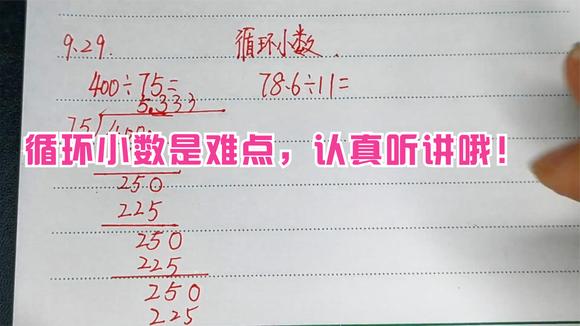 9.29. 循环小数.
400÷75= 78.6÷11=
5.333
75
循环小数是难点，认真听讲哦！
250
225
250
225
250
225